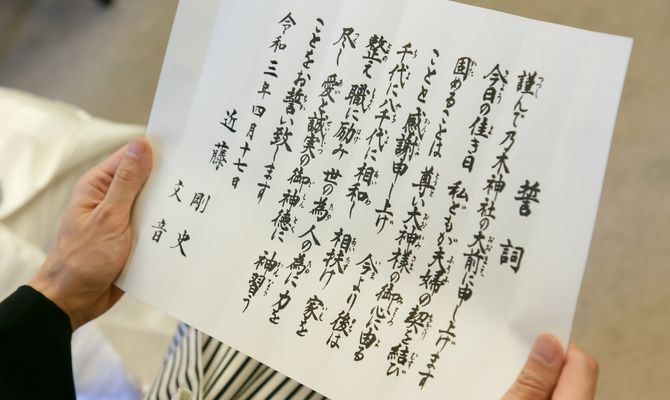 誓詞
謹んで乃木神社の大前に申し上げます
今日の佳き日 私どもが夫婦の契を結び
固めることは 尊い大神様の御心に由る
ことと 感謝申し上げ 今より後は
千代に八千代に相和し 相扶け 家を
整え 職に励み 世の為 人の為に 力を
尽し 愛と誠実の御神徳に 神習う
ことをお誓い致します
令和三年四月十七日
近藤 剛史
文音